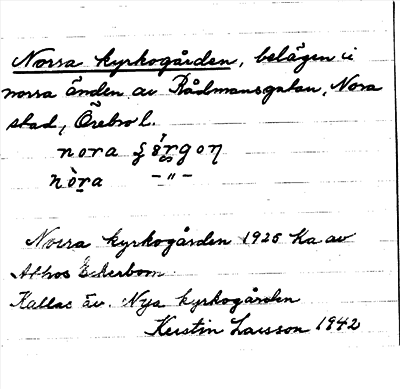 Norra kyrkogården, belägen i
norra änden av Rådmansgatan, Nora
stad, Örebro l.
nora
nòra — " —
Norra kyrkogården 1925 Ka av
Athos Ekerbom
Kallas äv. Nya kyrkogården
Kerstin Larsson 1942